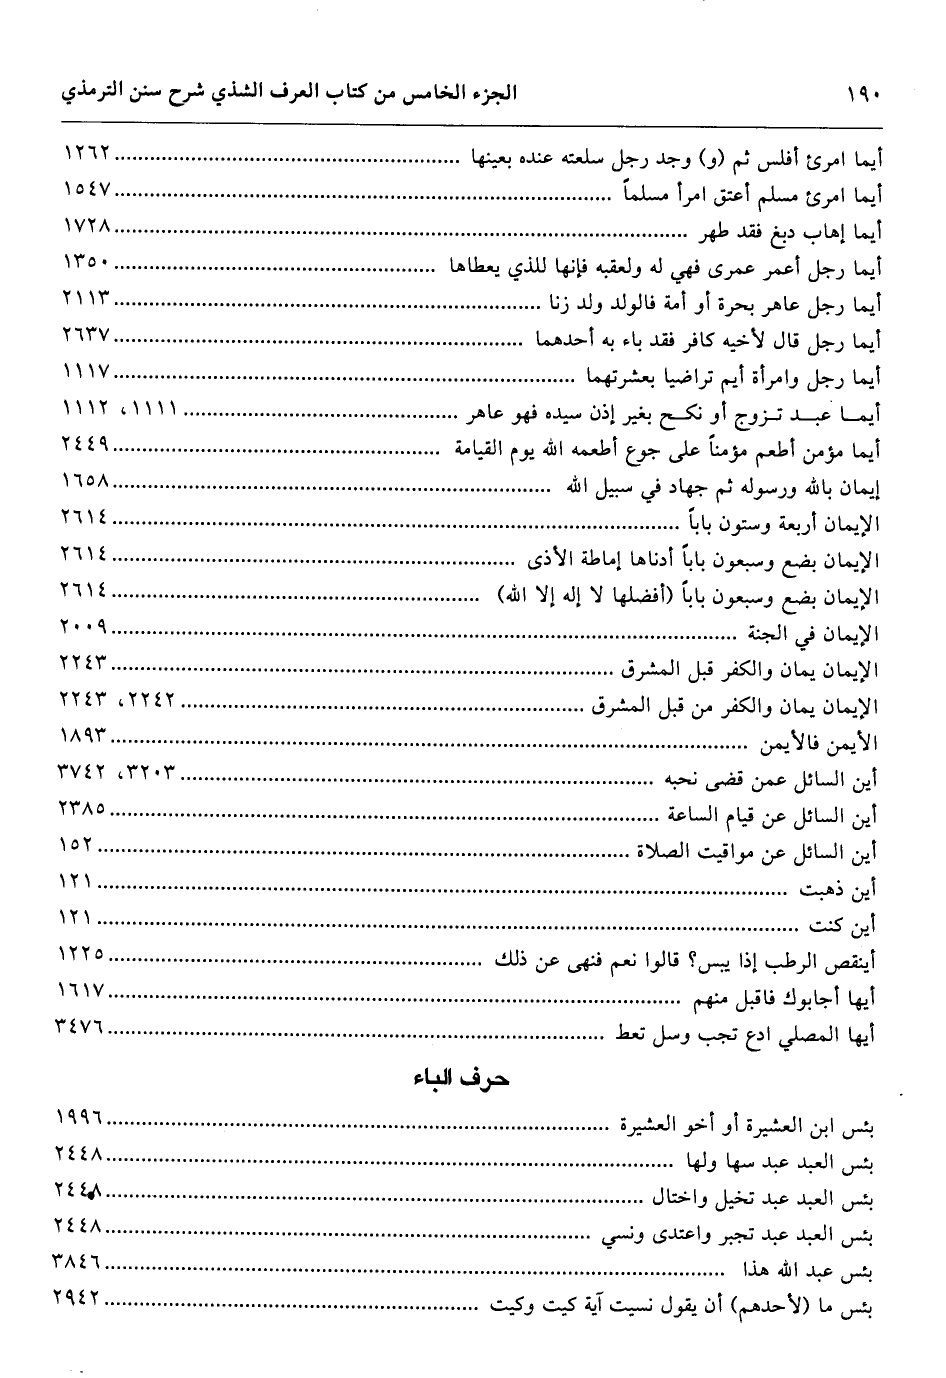 ١٩٠ الجزء الخامس من كتاب العرف الشذي شرح سنن الترمذي
أيما امرئ أفلس ثم (و) وجد رجل سلعته عنده بعينها ١٢٦٢
أيما امرئ مسلم أعتق امرأ مسلماً ١٥٤٧
أيما إهاب دبغ فقد طهر ١٧٢٨
أيما رجل أعمر عمرى فهي له ولعقبه فإنها للذي يعطاها ١٣٥٠
أيما رجل عاهر بحرة أو أمة فالولد ولد زنا ٢١١٣
أيما رجل قال لأخيه كافر فقد باء به أحدهما ٢٦٣٧
أيما رجل وامرأة أيم تراضيا بعشرتهما ١١١٧
أيما عبد تزوج أو نكح بغير إذن سيده فهو عاهر ١١١١، ١١١٢
أيما مؤمن أطعم مؤمناً على جوع أطعمه الله يوم القيامة ٢٤٤٩
إيمان بالله ورسوله ثم جهاد في سبيل الله ١٦٥٨
الإيمان أربعة وستون باباً ٢٦١٤
الإيمان بضع وسبعون باباً أدناها إماطة الأذى ٢٦١٤
الإيمان بضع وسبعون باباً (أفضلها لا إله إلا الله) ٢٦١٤
الإيمان في الجنة ٢٠٠٩
الإيمان يمان والكفر قبل المشرق ٢٢٤٣
الإيمان يمان والكفر من قبل المشرق ٢٢٤٢، ٢٢٤٣
الأيمن فالأيمن ١٨٩٣
أين السائل عمن قضى نحبه ٣٢٠٣، ٣٧٤٢
أين السائل عن قيام الساعة ٢٣٨٥
أين السائل عن مواقيت الصلاة ١٥٢
أين ذهبت ١٢١
أين كنت ١٢١
أينقص الرطب إذا يبس؟ قالوا نعم فنهى عن ذلك ١٢٢٥
أيها أجابوك فاقبل منهم ١٦١٧
أيها المصلي ادع تجب وسل تعط ٣٤٧٦
حرف الباء
بئس ابن العشيرة أو أخو العشيرة ١٩٩٦
بئس العبد عبد سها ولها ٢٤٤٨
بئس العبد عبد تخيل واختال ٢٤٤٨
بئس العبد عبد تجبر واعتدى ونسي ٢٤٤٨
بئس عبد الله هذا ٣٨٤٦
بئس ما (لأحدهم) أن يقول نسيت آية كيت وكيت ٢٩٤٢